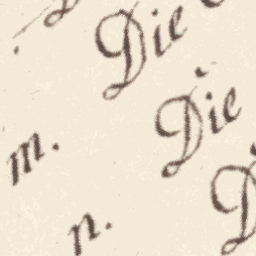 Die
m. Die
n.